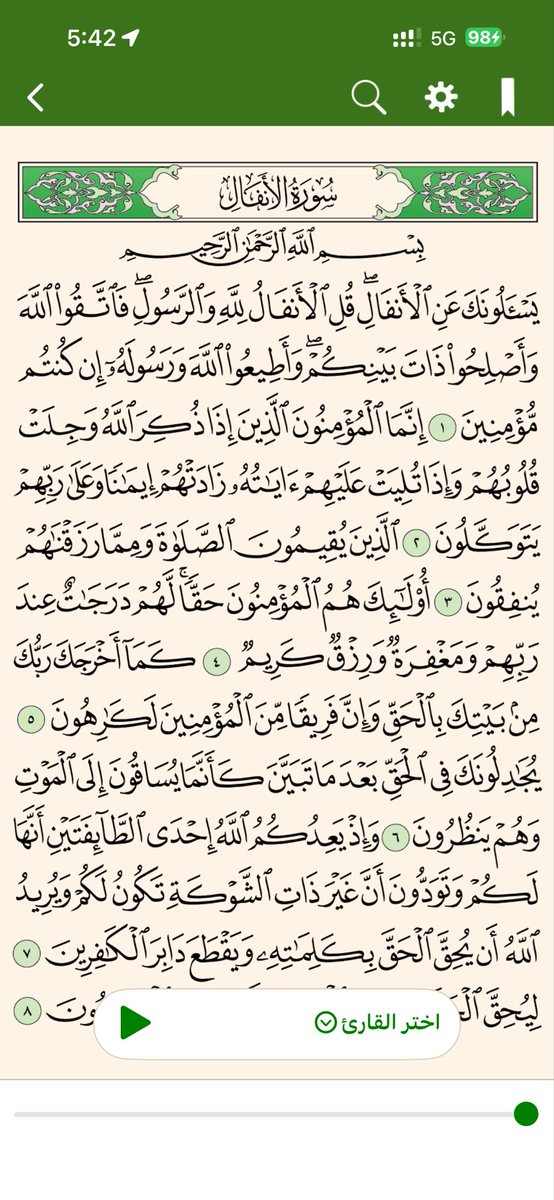 5:42
5G
98
سُورَةُ الأَنفَالِ
بِسْمِ اللَّهِ الرَّحْمَٰنِ الرَّحِيمِ
يَسْـَٔلُونَكَ عَنِ ٱلْأَنفَالِۖ قُلِ ٱلْأَنفَالُ لِلَّهِ وَٱلرَّسُولِۖ فَٱتَّقُوا۟ ٱللَّهَ
وَأَصْلِحُوا۟ ذَاتَ بَيْنِكُمْۖ وَأَطِيعُوا۟ ٱللَّهَ وَرَسُولَهُۥٓ إِن كُنتُم
مُّؤْمِنِينَ ١ إِنَّمَا ٱلْمُؤْمِنُونَ ٱلَّذِينَ إِذَا ذُكِرَ ٱللَّهُ وَجِلَتْ
قُلُوبُهُمْ وَإِذَا تُلِيَتْ عَلَيْهِمْ ءَايَٰتُهُۥ زَادَتْهُمْ إِيمَٰنًا وَعَلَىٰ رَبِّهِمْ
يَتَوَكَّلُونَ ٢ ٱلَّذِينَ يُقِيمُونَ ٱلصَّلَوٰةَ وَمِمَّا رَزَقْنَٰهُمْ
يُنفِقُونَ ٣ أُو۟لَٰٓئِكَ هُمُ ٱلْمُؤْمِنُونَ حَقًّاۚ لَّهُمْ دَرَجَٰتٌ عِندَ
رَبِّهِمْ وَمَغْفِرَةٌ وَرِزْقٌ كَرِيمٌ ٤ كَمَآ أَخْرَجَكَ رَبُّكَ
مِنۢ بَيْتِكَ بِٱلْحَقِّ وَإِنَّ فَرِيقًا مِّنَ ٱلْمُؤْمِنِينَ لَكَٰرِهُونَ ٥
يُجَٰدِلُونَكَ فِى ٱلْحَقِّ بَعْدَ مَا تَبَيَّنَ كَأَنَّمَا يُسَاقُونَ إِلَى ٱلْمَوْتِ
وَهُمْ يَنظُرُونَ ٦ وَإِذْ يَعِدُكُمُ ٱللَّهُ إِحْدَى ٱلطَّآئِفَتَيْنِ أَنَّهَا
لَكُمْ وَتَوَدُّونَ أَنَّ غَيْرَ ذَاتِ ٱلشَّوْكَةِ تَكُونُ لَكُمْ وَيُرِيدُ
ٱللَّهُ أَن يُحِقَّ ٱلْحَقَّ بِكَلِمَٰتِهِۦ وَيَقْطَعَ دَابِرَ ٱلْكَٰفِرِينَ ٧
لِيُحِقَّ ٨
اختر القارئ